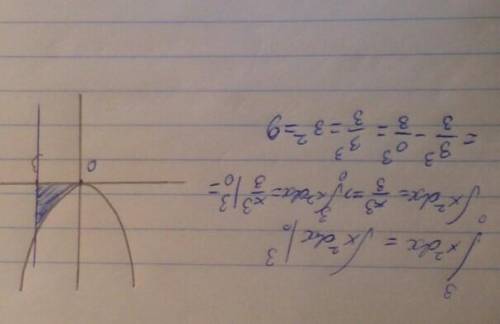 ∫₀³ x²dx = ∫x²dx |₀³
∫x²dx = x³/3 => ∫₀³ x²dx = x³/3 |₀³ =
= 3³/3 - 0³/3 = 3³/3 = 3² = 9
0